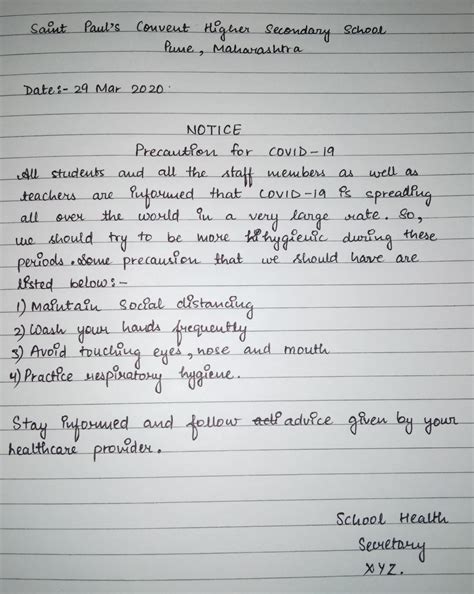 Saint Paul's Convent Higher Secondary School
Pune, Maharashtra
Date:- 29 Mar 2020.
NOTICE
Precaution for COVID-19
All students and all the staff members as well as
teachers are informed that COVID-19 is spreading
all over the world in a very large rate. So,
we should try to be more hygienic during these
periods. Some precausion that we should have are
listed below:-
1) Maintain Social distancing
2) Wash your hands frequently
3) Avoid touching eyes, nose and mouth
4) Practice respiratory hygiene.
Stay informed and follow advice given by your
healthcare provider.
School Health
Secretary
XYZ.